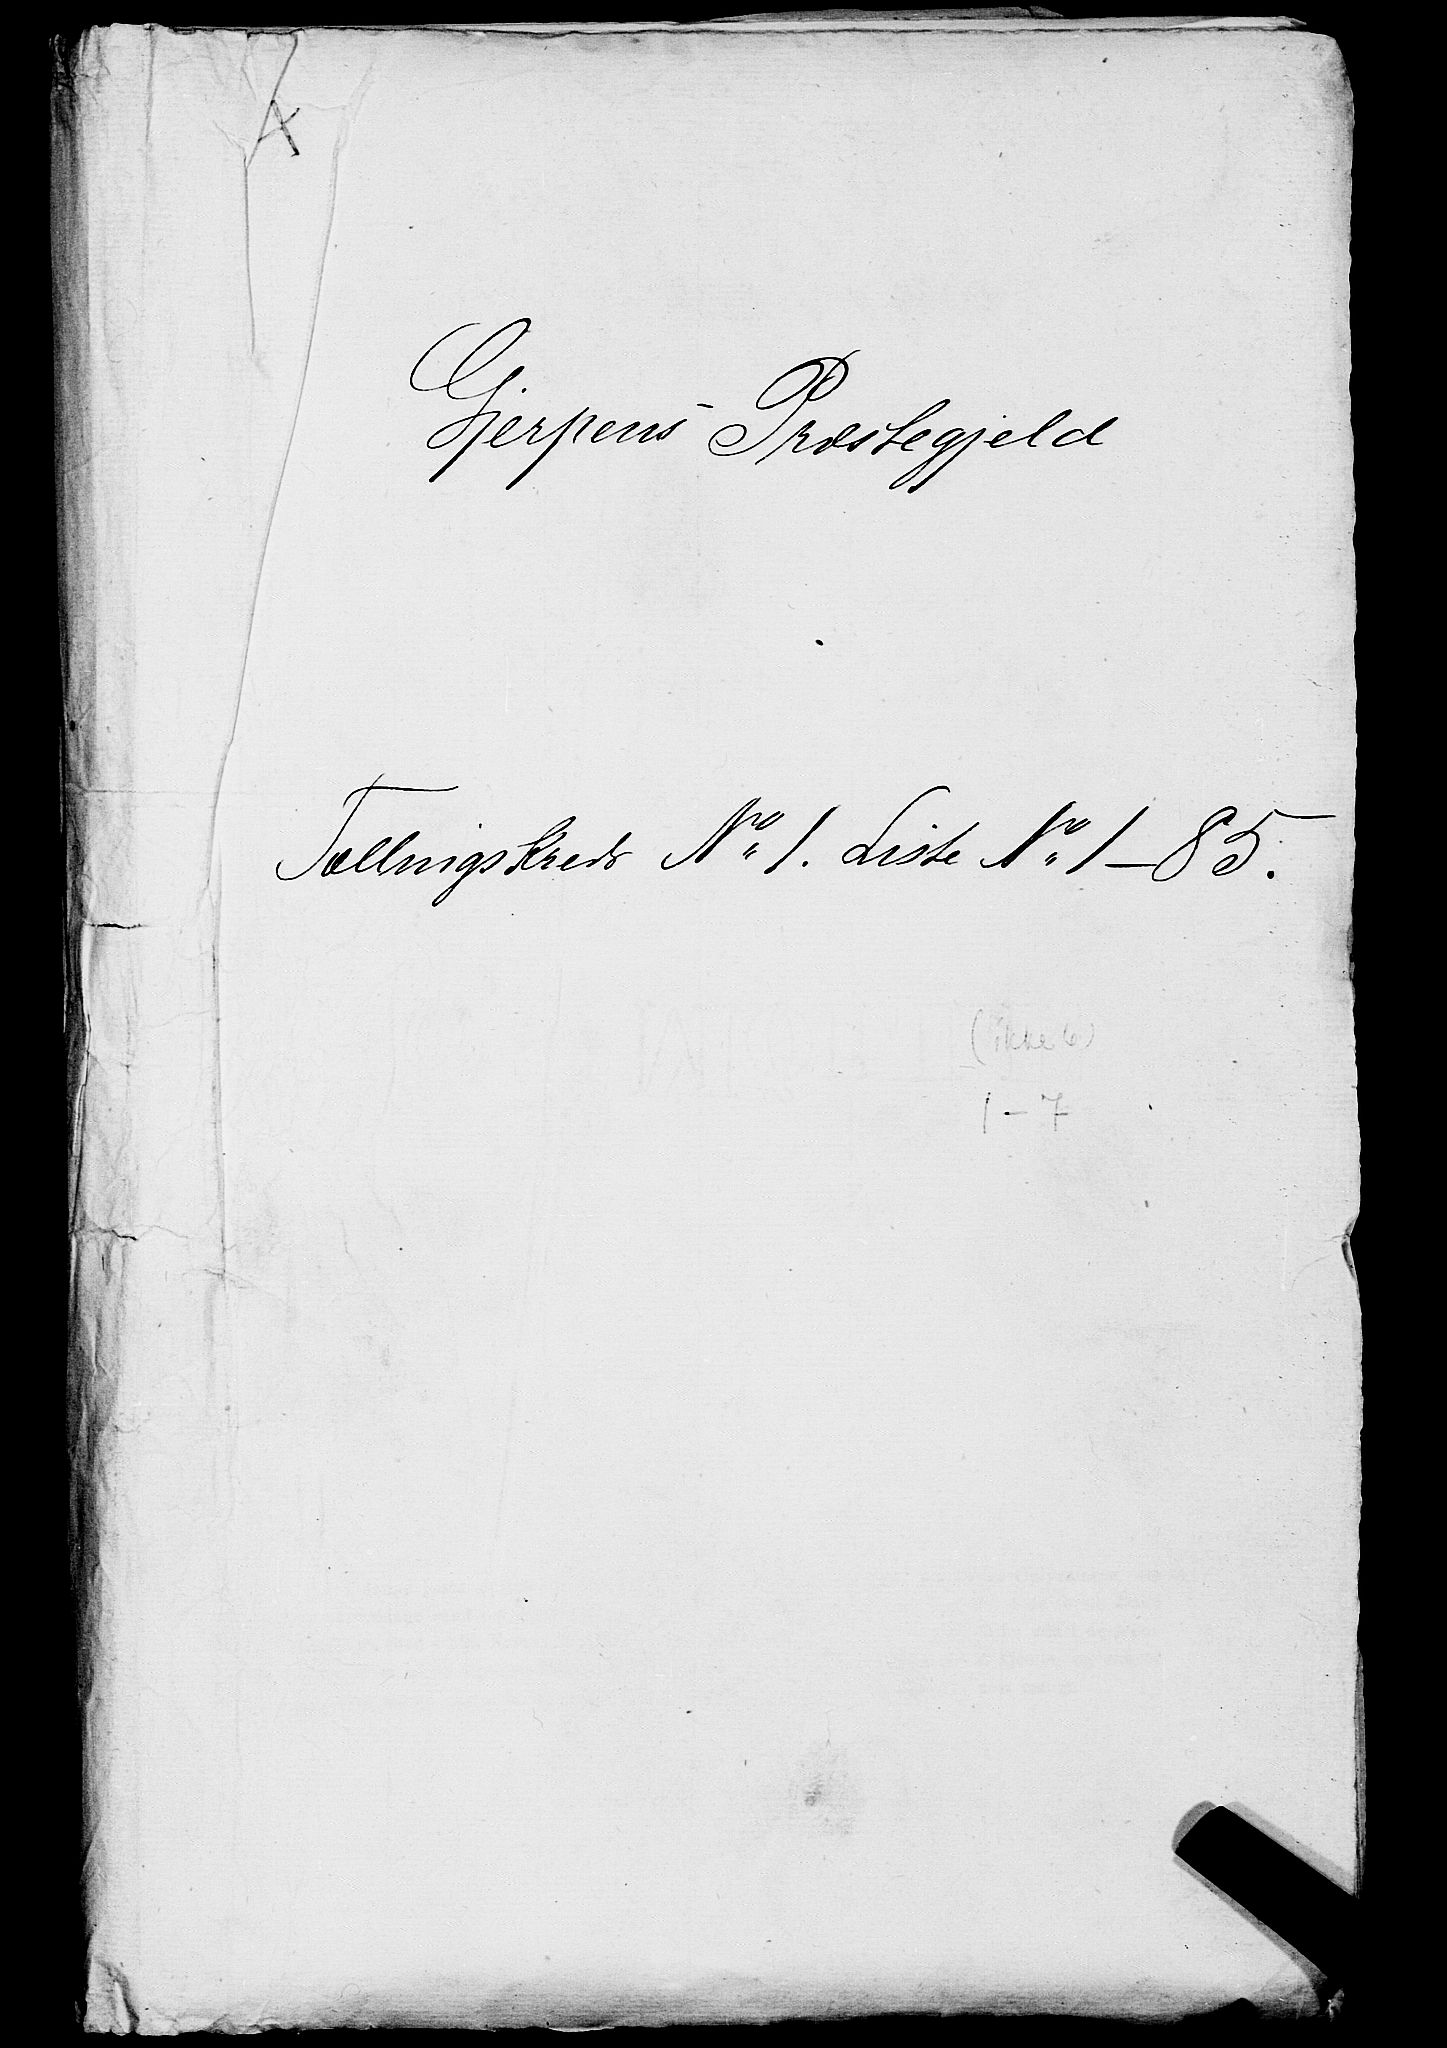 Gjerpens Præstegjeld
Tællingskreds No 1. Liste No 1–85.
(ikke 6)
1–7